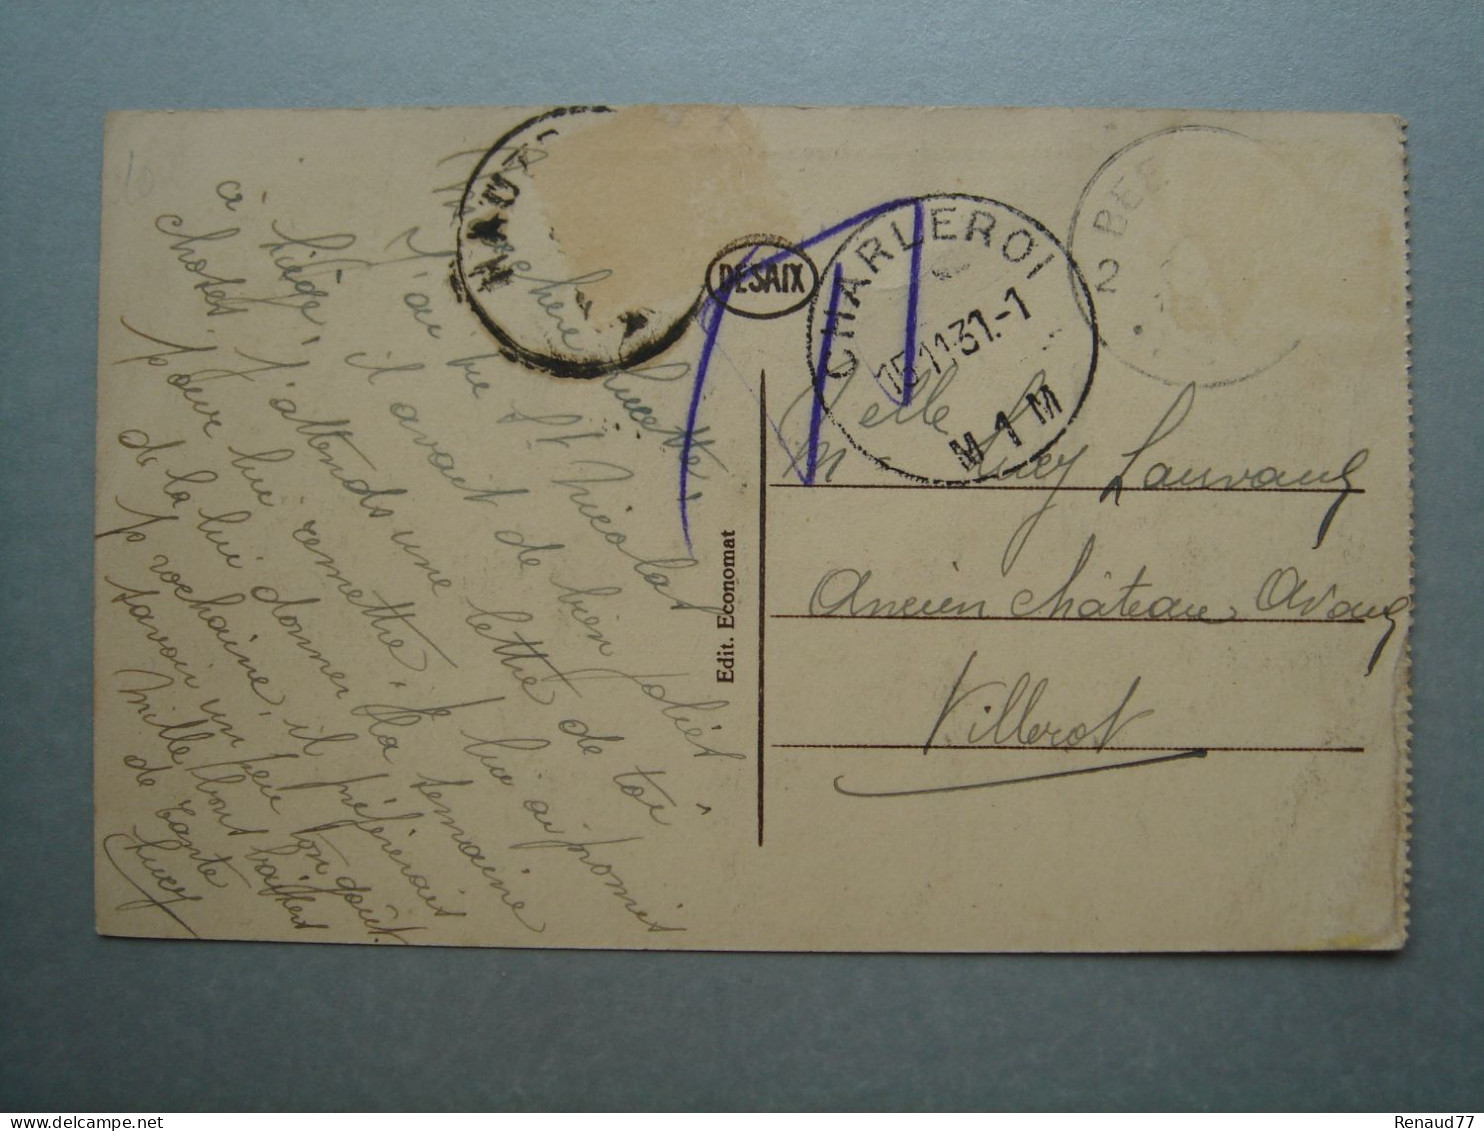 HAUT
DESAIX
CHARLEROI
15.11.31.-1
M 1 M
BEE
2
Ma chère Lucette,
J'ai vu St Nicolas
à Liège, il avait de bien jolies
choses. J'attends une lettre de toi
pour lui remettre. Je lui ai promis
de la lui donner la semaine
prochaine, il préférerait
savoir un peu ton goût.
Mille bons baisers
de tante
Lucy
Edit. Economat
Melle Lucy Lauvaux
Ancien château
Villerot
Renaud77